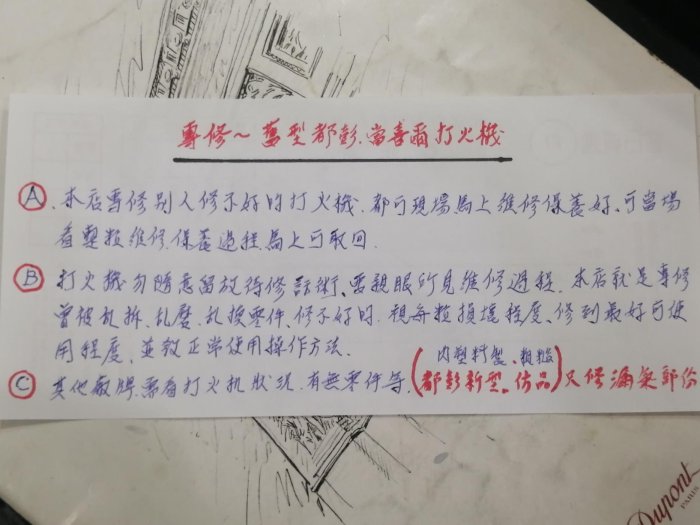 專修~舊型都彭.當喜爾打火機
Ⓐ.本店專修別人修不好的打火機.都可現場馬上維修保養好.可當場
看整粒維修.保養過程.馬上可取回.
Ⓑ 打火機勿隨意留放待修話術、要親眼所見維修過程.本店就是專修
曾被乱拆、乱磨、乱換零件、修不好的.視每粒損壞程度、修到最好可使
用程度、並教正常使用操作方法.
內塑料型、粗糙
Ⓒ 其他廠牌.需看打火机狀況.有無零件等.(都彭新型、仿品)只修漏氣部份
Dupont
PARIS